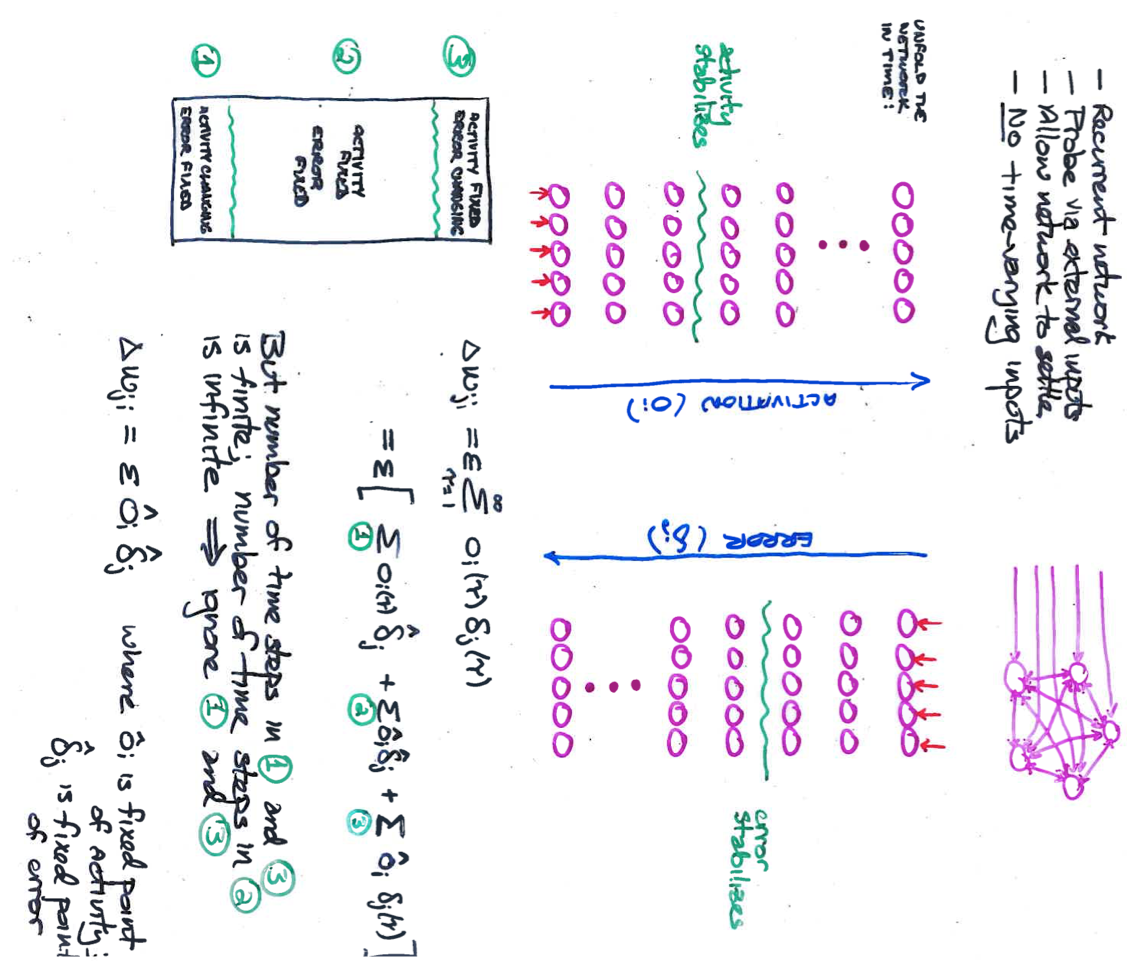 - Recurrent network
- Probe via external inputs
- Allow network to settle
- No time-varying inputs
UNFOLD THE
NETWORK
IN TIME:
activity
stabilizes
ACTIVATION (oi)
ERROR (δj)
error
stabilizes
③
②
①
ACTIVITY FIXED
ERROR CHANGING
ACTIVITY
FIXED
ERROR
FIXED
ACTIVITY CHANGING
ERROR FIXED
Δwji = ε Σ∞τ=1 oi(τ) δj(τ)
= ε [ Σ oi(τ) δ̂j + Σ ôi δ̂j + Σ ôi δj(τ) ]
① ② ③
But number of time steps in ① and ③
is finite; number of time steps in ②
is infinite ⇒ ignore ① and ③
Δwji = ε ôi δ̂j where ôi is fixed point
of activity;
δ̂j is fixed point
of error